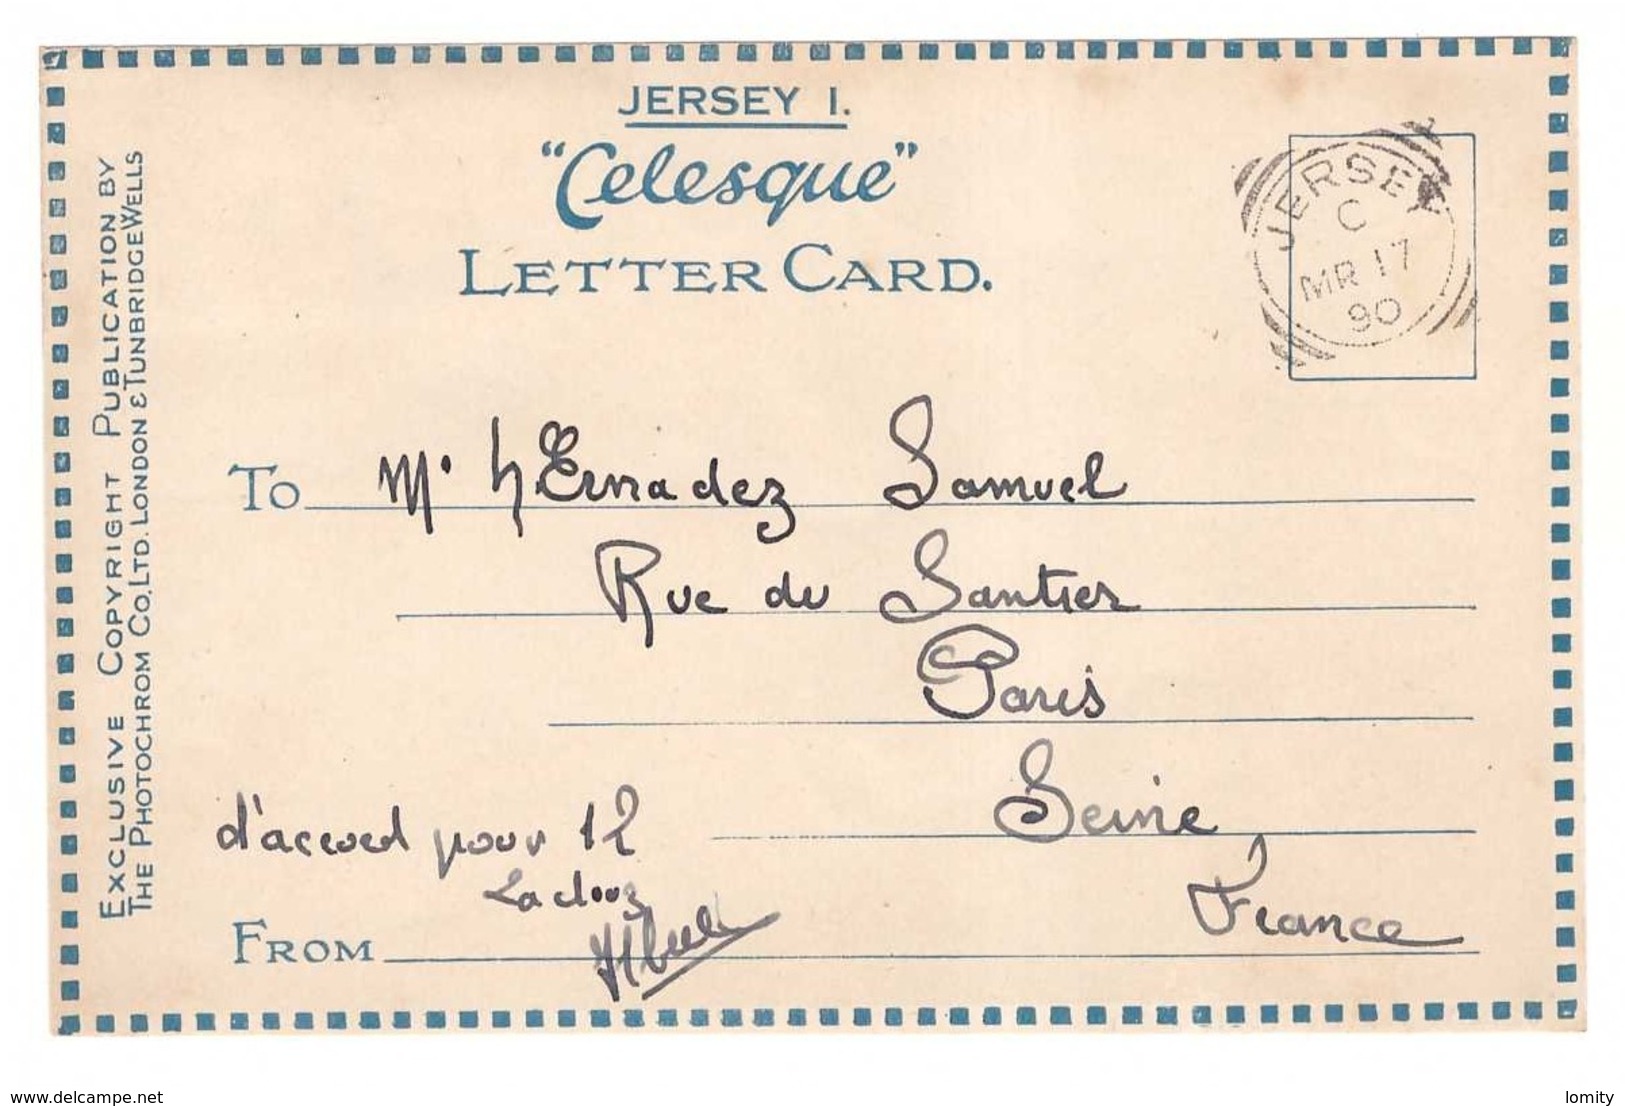 JERSEY I.
"Celesque"
LETTER CARD.
EXCLUSIVE COPYRIGHT PUBLICATION BY
THE PHOTOCHROM CO. LTD. LONDON & TUNBRIDGE WELLS
JERSEY
C
MR 17
90
TO Mr hErnadez Samuel
Rue du Santier
Paris
Seine
France
d'accord pour 12
FROM
www.delcampe.net
lomity